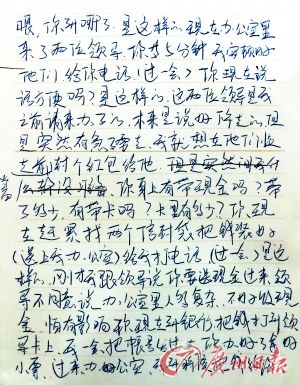 喂，你到哪了，是这样的现在办公室里
来了两位领导，你等5分钟我安顿好
他们给你电话（过一会）你现在说
话方便吗？是这样的，这两位领导是我
之前请来办事的，本来是说好
但是突然有急事走，我就想在他们临
走前封个红包给他，但是突然
备 你身上有带现金吗？带
了多少，有带卡吗？卡里有多少？你现
在赶紧找两个信封袋把钱装好
（送上我办公室）给我打电话（过一会）是这
样的，刚才我跟领导说你要送现金过来，领
导不同意说，办公室里人多复杂，不好给现
金，怕有影响，你现在到银行把钱打到领
导卡上，我一会把帐号发过
小票，过来办公室
广州日报